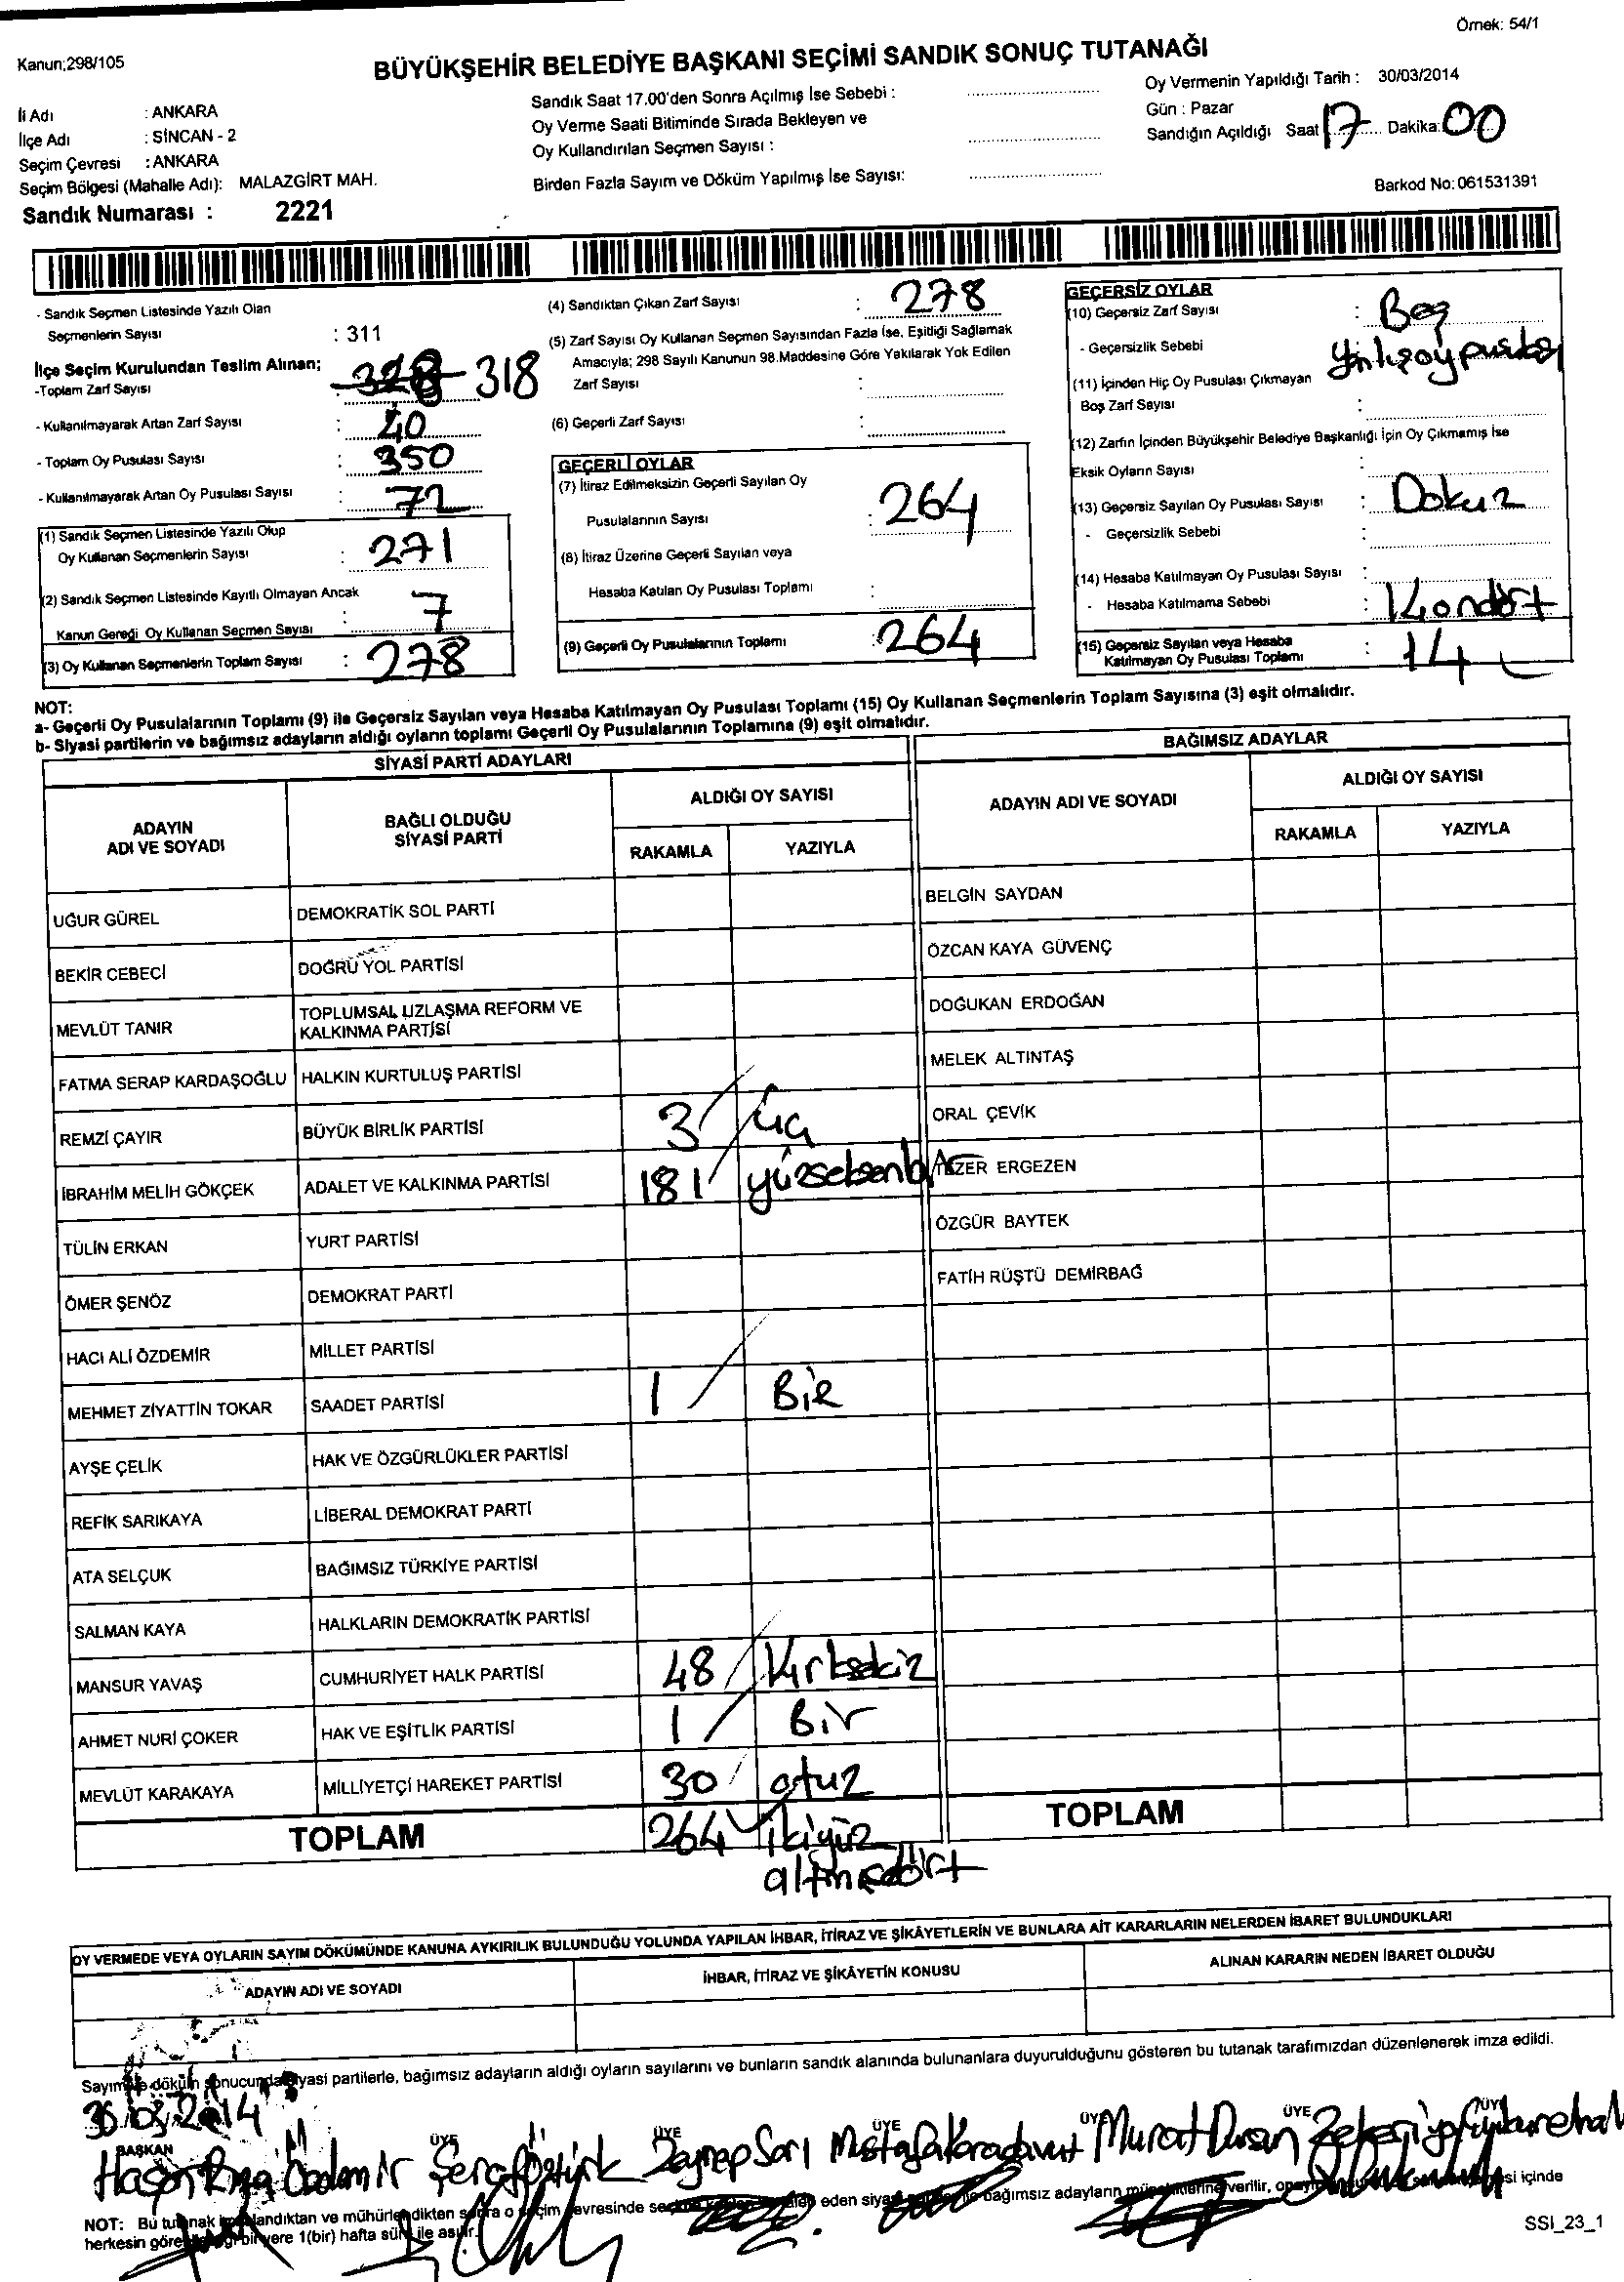 Örnek: 54/1
Kanun;298/105
BÜYÜKŞEHİR BELEDİYE BAŞKANI SEÇİMİ SANDIK SONUÇ TUTANAĞI
İli Adı : ANKARA
İlçe Adı : SİNCAN - 2
Seçim Çevresi : ANKARA
Seçim Bölgesi (Mahalle Adı): MALAZGİRT MAH.
Sandık Numarası : 2221
Sandık Saat 17.00'den Sonra Açılmış İse Sebebi :
Oy Verme Saati Bitiminde Sırada Bekleyen ve
Oy Kullandırılan Seçmen Sayısı :
Birden Fazla Sayım ve Döküm Yapılmış İse Sayısı:
Oy Vermenin Yapıldığı Tarih : 30/03/2014
Gün : Pazar
Sandığın Açıldığı Saat 17 Dakika: 00
Barkod No: 061531391
- Sandık Seçmen Listesinde Yazılı Olan
Seçmenlerin Sayısı : 311
İlçe Seçim Kurulundan Teslim Alınan;
-Toplam Zarf Sayısı : 318
- Kullanılmayarak Artan Zarf Sayısı : 40
- Toplam Oy Pusulası Sayısı : 350
- Kullanılmayarak Artan Oy Pusulası Sayısı : 72
(1) Sandık Seçmen Listesinde Yazılı Olup
Oy Kullanan Seçmenlerin Sayısı : 271
(2) Sandık Seçmen Listesinde Kayıtlı Olmayan Ancak
Kanun Gereği Oy Kullanan Seçmen Sayısı : 7
(3) Oy Kullanan Seçmenlerin Toplam Sayısı : 278
(4) Sandıktan Çıkan Zarf Sayısı : 278
(5) Zarf Sayısı Oy Kullanan Seçmen Sayısından Fazla İse, Eşitliği Sağlamak
Amacıyla; 298 Sayılı Kanunun 98.Maddesine Göre Yakılarak Yok Edilen
Zarf Sayısı :
(6) Geçerli Zarf Sayısı :
GEÇERLİ OYLAR
(7) İtiraz Edilmeksizin Geçerli Sayılan Oy
Pusulalarının Sayısı : 264
(8) İtiraz Üzerine Geçerli Sayılan veya
Hesaba Katılan Oy Pusulası Toplamı :
(9) Geçerli Oy Pusulalarının Toplamı : 264
GEÇERSİZ OYLAR
(10) Geçersiz Zarf Sayısı : Beş
- Geçersizlik Sebebi
(11) İçinden Hiç Oy Pusulası Çıkmayan
Boş Zarf Sayısı :
(12) Zarfın İçinden Büyükşehir Belediye Başkanlığı İçin Oy Çıkmamış İse
Eksik Oyların Sayısı :
(13) Geçersiz Sayılan Oy Pusulası Sayısı : Dokuz
- Geçersizlik Sebebi :
(14) Hesaba Katılmayan Oy Pusulası Sayısı :
- Hesaba Katılmama Sebebi : 14 ondört
(15) Geçersiz Sayılan veya Hesaba
Katılmayan Oy Pusulası Toplamı : 14
NOT:
a- Geçerli Oy Pusulalarının Toplamı (9) ile Geçersiz Sayılan veya Hesaba Katılmayan Oy Pusulası Toplamı (15) Oy Kullanan Seçmenlerin Toplam Sayısına (3) eşit olmalıdır.
b- Siyasi partilerin ve bağımsız adayların aldığı oyların toplamı Geçerli Oy Pusulalarının Toplamına (9) eşit olmalıdır.
SİYASİ PARTİ ADAYLARI
ADAYIN ADI VE SOYADI BAĞLI OLDUĞU SİYASİ PARTİ ALDIĞI OY SAYISI
RAKAMLA YAZIYLA
UĞUR GÜREL DEMOKRATİK SOL PARTİ
BEKİR CEBECİ DOĞRU YOL PARTİSİ
MEVLÜT TANIR TOPLUMSAL UZLAŞMA REFORM VE KALKINMA PARTİSİ
FATMA SERAP KARDAŞOĞLU HALKIN KURTULUŞ PARTİSİ
REMZİ ÇAYIR BÜYÜK BİRLİK PARTİSİ 3 üç
İBRAHİM MELİH GÖKÇEK ADALET VE KALKINMA PARTİSİ 181 yüzseksenbir
TÜLİN ERKAN YURT PARTİSİ
ÖMER ŞENÖZ DEMOKRAT PARTİ
HACI ALİ ÖZDEMİR MİLLET PARTİSİ
MEHMET ZİYATTİN TOKAR SAADET PARTİSİ 1 BİR
AYŞE ÇELİK HAK VE ÖZGÜRLÜKLER PARTİSİ
REFİK SARIKAYA LİBERAL DEMOKRAT PARTİ
ATA SELÇUK BAĞIMSIZ TÜRKİYE PARTİSİ
SALMAN KAYA HALKLARIN DEMOKRATİK PARTİSİ
MANSUR YAVAŞ CUMHURİYET HALK PARTİSİ 48 Kırksekiz
AHMET NURİ ÇOKER HAK VE EŞİTLİK PARTİSİ 1 Bir
MEVLÜT KARAKAYA MİLLİYETÇİ HAREKET PARTİSİ 30 otuz
TOPLAM 264 ikiyüz
altmışdört
BAĞIMSIZ ADAYLAR
ADAYIN ADI VE SOYADI ALDIĞI OY SAYISI
RAKAMLA YAZIYLA
BELGİN SAYDAN
ÖZCAN KAYA GÜVENÇ
DOĞUKAN ERDOĞAN
MELEK ALTINTAŞ
ORAL ÇEVİK
TEZER ERGEZEN
ÖZGÜR BAYTEK
FATİH RÜŞTÜ DEMİRBAĞ
TOPLAM
OY VERMEDE VEYA OYLARIN SAYIM DÖKÜMÜNDE KANUNA AYKIRILIK BULUNDUĞU YOLUNDA YAPILAN İHBAR, İTİRAZ VE ŞİKÂYETLERİN VE BUNLARA AİT KARARLARIN NELERDEN İBARET BULUNDUKLARI
ADAYIN ADI VE SOYADI İHBAR, İTİRAZ VE ŞİKÂYETİN KONUSU ALINAN KARARIN NEDEN İBARET OLDUĞU
Sayım ve döküm sonucunda siyasi partilerle, bağımsız adayların aldığı oyların sayılarını ve bunların sandık alanında bulunanlara duyurulduğunu gösteren bu tutanak tarafımızdan düzenlenerek imza edildi.
30.03.2014
BAŞKAN ÜYE ÜYE ÜYE ÜYE ÜYE ÜYE
Hasan Özdemir Zeynep Sarı Mustafa Karadavut Murat Dursun Zekeriya
NOT: Bu tutanak imzalandıktan ve mühürlendikten sonra o seçim çevresinde eden siyasi bağımsız adayların müşahitlerine verilir, içinde
herkesin göreceği bir yere 1(bir) hafta süre ile asılır.
SSI_23_1